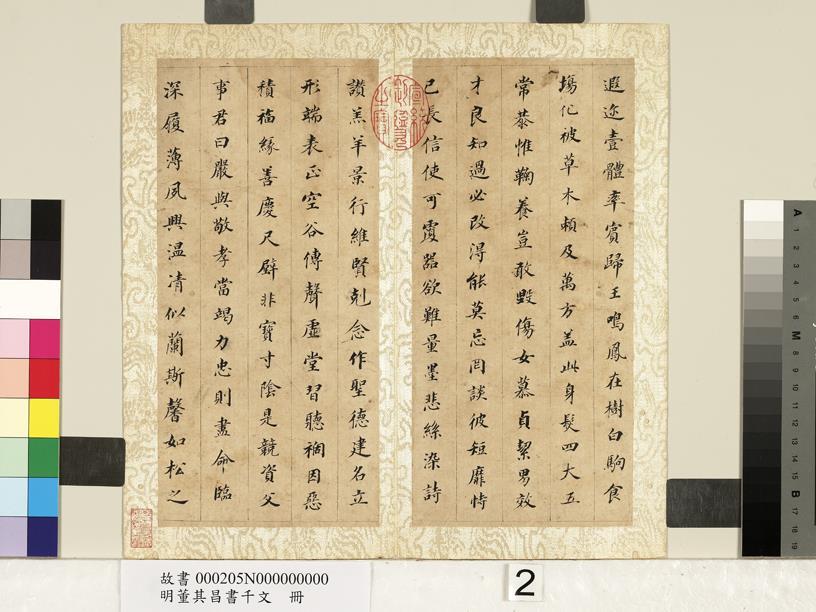 遐迩壹體率賓歸王鳴鳳在樹白駒食
場化被草木賴及萬方盖此身髮四大五
常恭惟鞠養豈敢毀傷女慕貞絜男效
才良知過必改得能莫忘罔談彼短靡恃
己長信使可覆器欲難量墨悲絲染詩
讚羔羊景行維賢剋念作聖德建名立
形端表正空谷傳聲虛堂習聽禍因惡
積福緣善慶尺璧非寶寸陰是競資父
事君曰嚴與敬孝當竭力忠則盡命臨
深履薄夙興温凊似蘭斯馨如松之
故書 000205N000000000
明董其昌書千文 冊
2
A 1 2 3 4 5 6 M 8 9 10 11 12 13 14 15 B 17 18 19